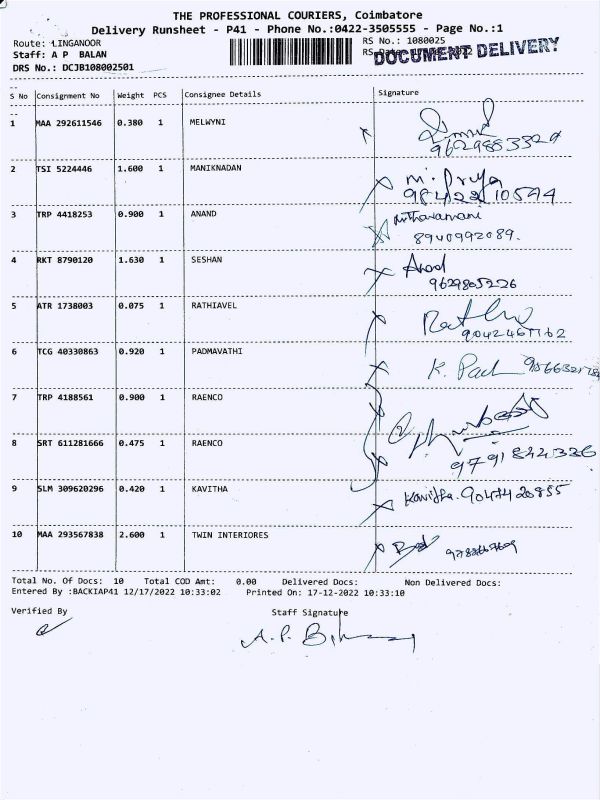 THE PROFESSIONAL COURIERS, Coimbatore
Delivery Runsheet - P41 - Phone No.:0422-3505555 - Page No.:1
Route: LINGANOOR RS No.: 1080025
Staff: A P BALAN
DOCUMENT DELIVERY
DRS No.: DCJB108002501
S No Consignment No Weight PCS Consignee Details Signature
1 MAA 292611546 0.380 1 MELWYNI
9629883329
2 TSI 5224446 1.600 1 MANIKNADAN M. Priya
9842210594
3 TRP 4418253 0.900 1 ANAND
8940992089.
4 RKT 8790120 1.630 1 SESHAN
9629805226
5 ATR 1738003 0.075 1 RATHIAVEL
6 TCG 40330863 0.920 1 PADMAVATHI K.
7 TRP 4188561 0.900 1 RAENCO
8 SRT 611281666 0.475 1 RAENCO
9791844336
9 SLM 309620296 0.420 1 KAVITHA Kavitha. 9047420855
10 MAA 293567838 2.600 1 TWIN INTERIORES
Total No. Of Docs: 10 Total COD Amt: 0.00 Delivered Docs: Non Delivered Docs:
Entered By :BACKIAP41 12/17/2022 10:33:02 Printed On: 17-12-2022 10:33:10
Verified By Staff Signature
A. P.